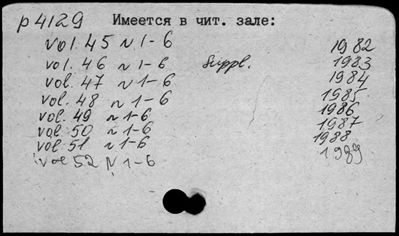 р4129 Имеется в чит. зале:
vol. 45 N 1-6 1982
vol. 46 N 1-6 Suppl. 1983
vol. 47 N 1-6 1984
vol. 48 N 1-6 1985
vol. 49 N 1-6 1986
vol. 50 N 1-6 1987
vol. 51 N 1-6 1988
vol 52 N 1-6 1989